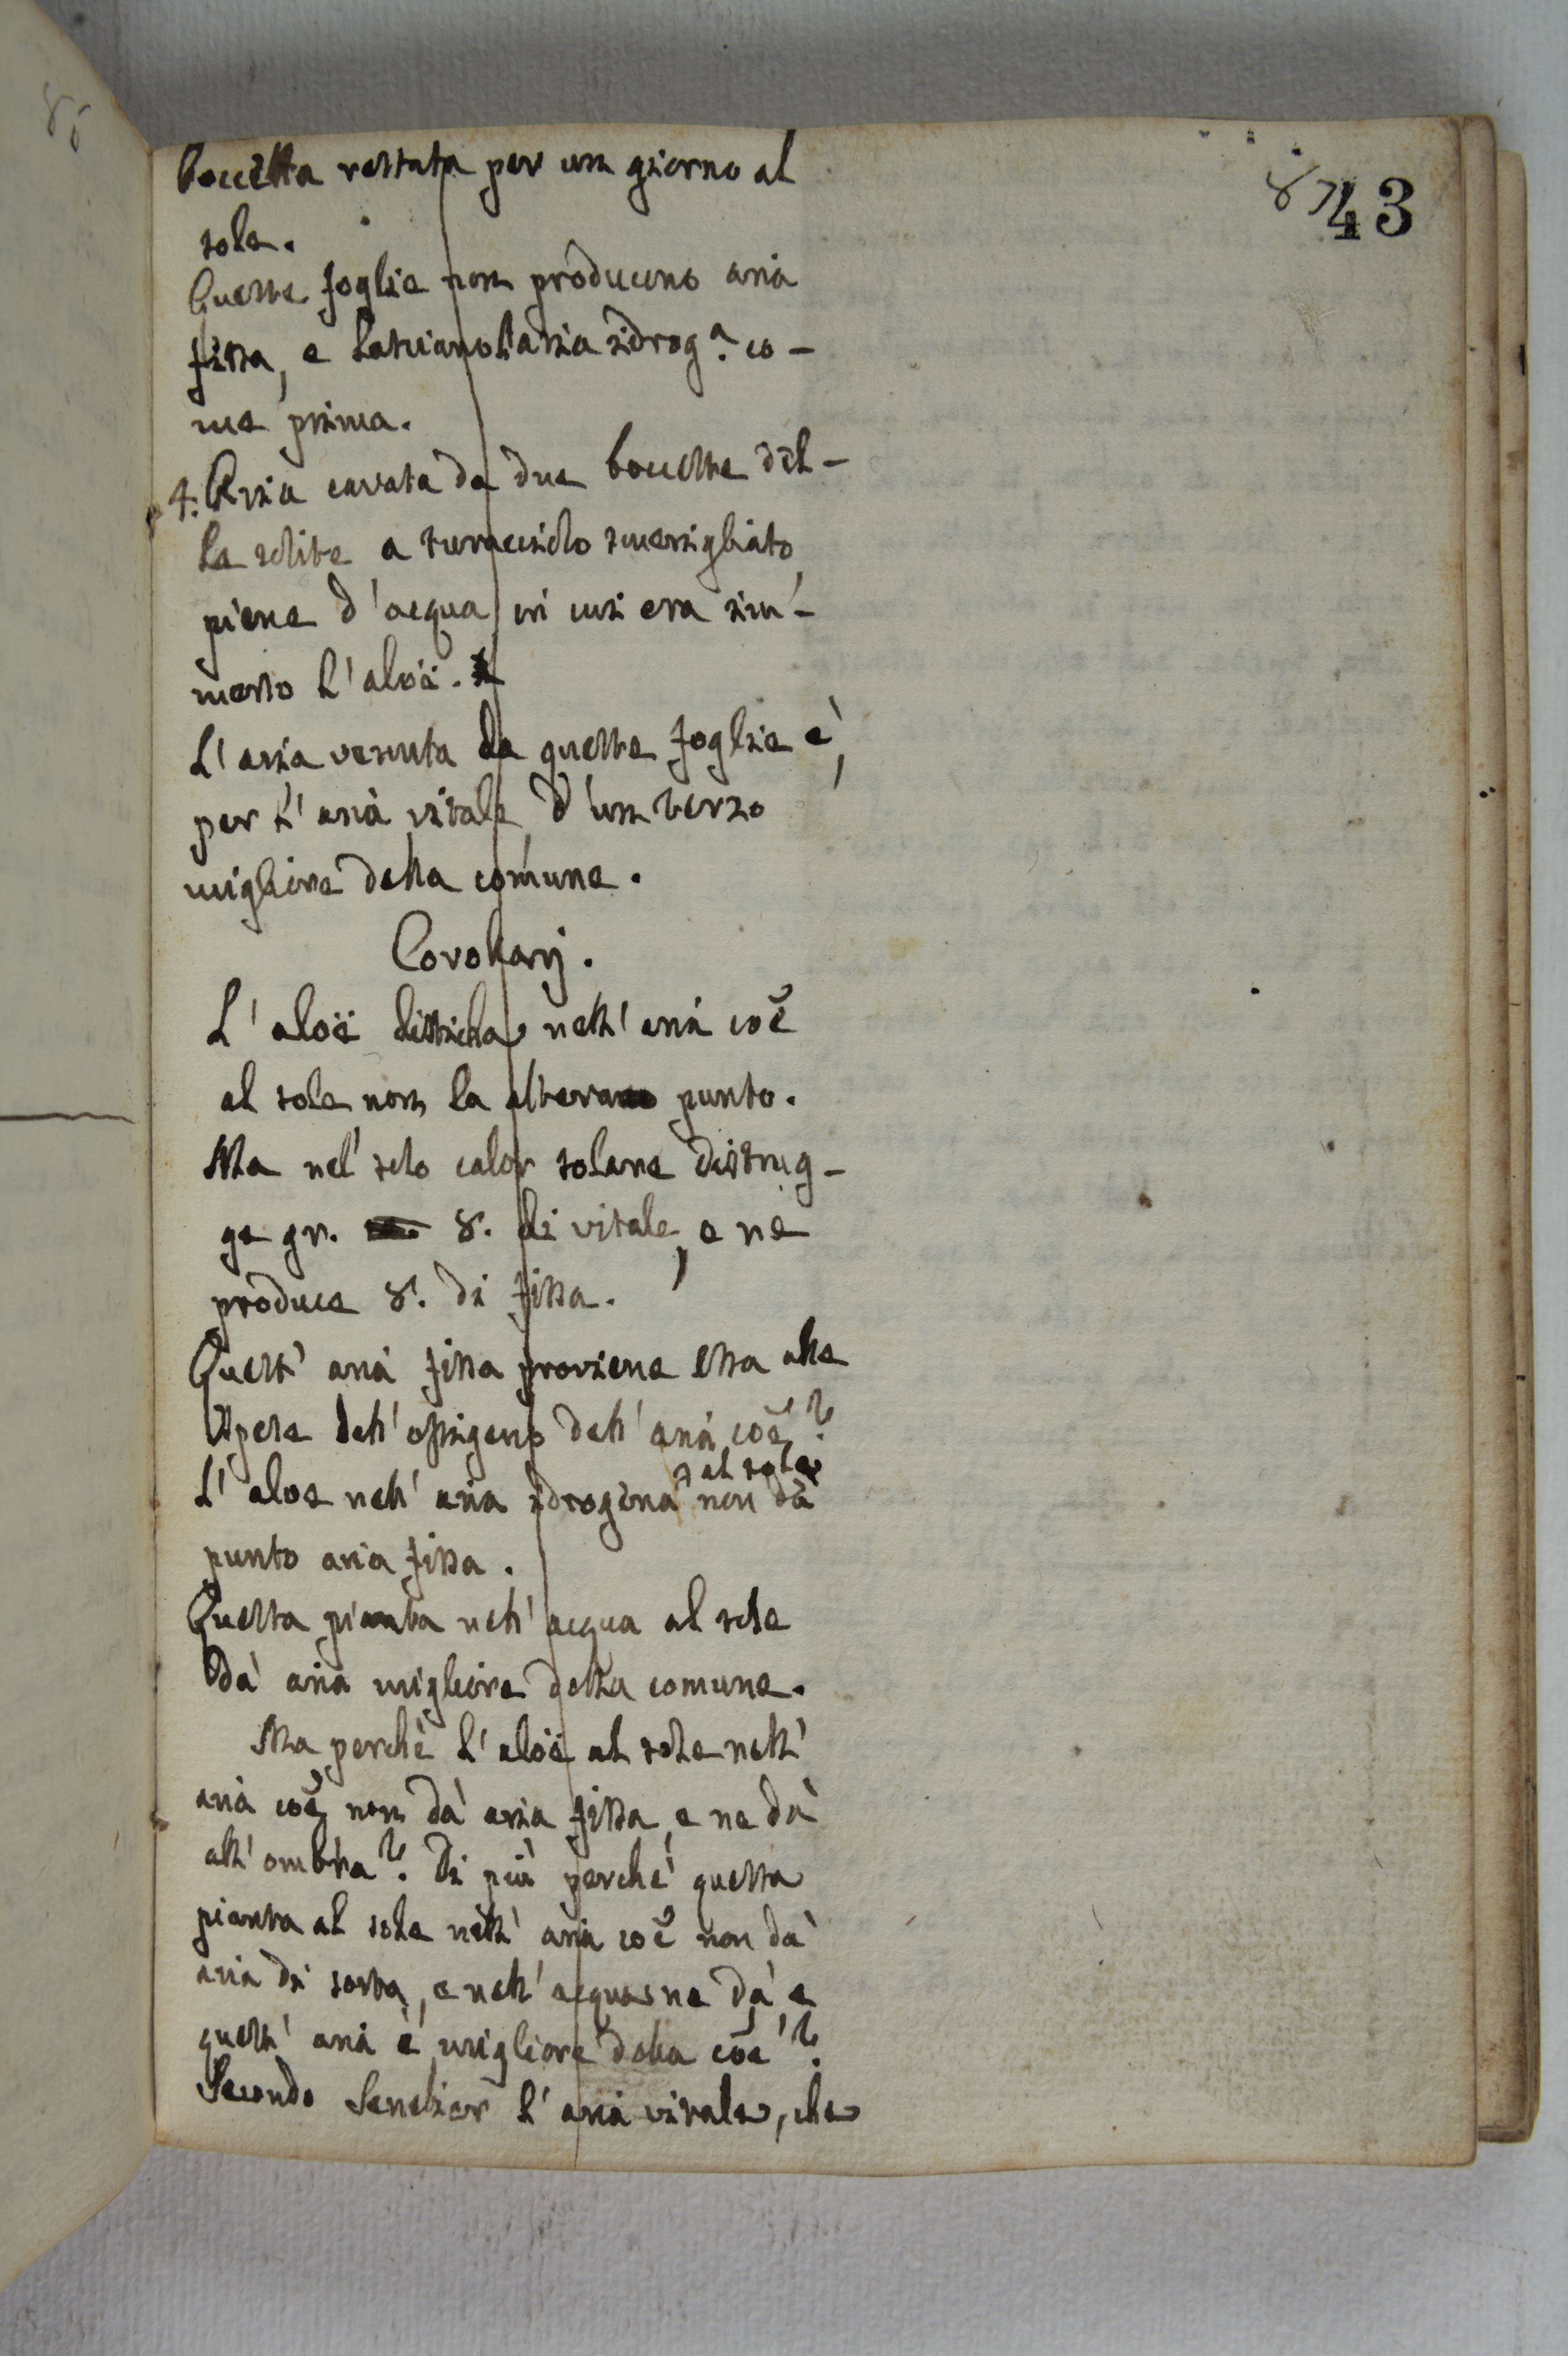 87 43
boccetta restata per un giorno al
sole.
Queste foglie non producono aria
fissa, e lasciano l'aria idrog.a co-
me prima.
4. Aria cavata da due boccette del-
le solite a turacciolo smerigliato
piene d'acqua in cui era im-
merso l'aloè.
L'aria venuta da queste foglie è,
per l'aria vitale, d'un terzo
migliore della comune.
Corollarj.
L'aloè disticha nell'aria coẽ
al sole non la altera punto.
Ma nel solo calor solare distrug-
ge gr. 8. di vitale, e ne
produce 8. di fissa.
Quest'aria fissa proviene essa alle
spese dell'ossigeno dell'aria coẽ?
L'aloe nell'aria idrogena al sole non dà
punto aria fissa.
Questa pianta nell'acqua al sole
dà aria migliore della comune.
Ma perchè l'aloè al sole nell'
aria coẽ non dà aria fissa, e ne dà
all'ombra? Di più perchè questa
pianta al sole nell'aria coẽ non dà
aria di sorta, e nell'acqua ne dà e
quest'aria è migliore della coẽ?
Secondo Senebier l'aria vitale, che